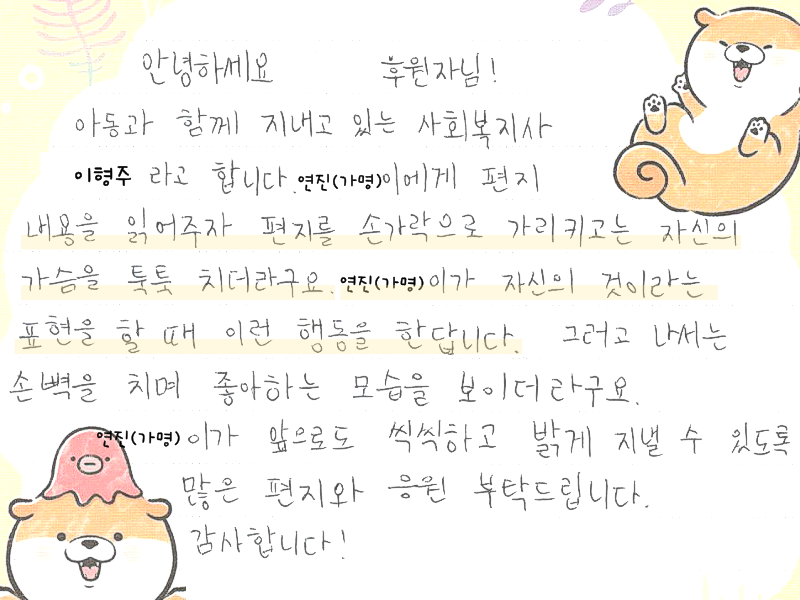 안녕하세요 후원자님!
아동과 함께 지내고 있는 사회복지사
이형주 라고 합니다. 연진(가명)이에게 편지
내용을 읽어주자 편지를 손가락으로 가리키고는 자신의
가슴을 툭툭 치더라구요. 연진(가명)이가 자신의 것이라는
표현을 할 때 이런 행동을 한답니다. 그러고 나서는
손뼉을 치며 좋아하는 모습을 보이더라구요.
연진(가명)이가 앞으로도 씩씩하고 밝게 지낼 수 있도록
많은 편지와 응원 부탁드립니다.
감사합니다!